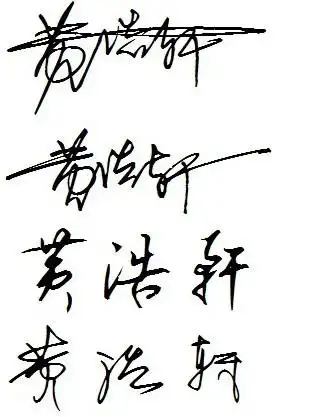 黄浩轩
黄浩轩
黄浩轩
黄浩轩